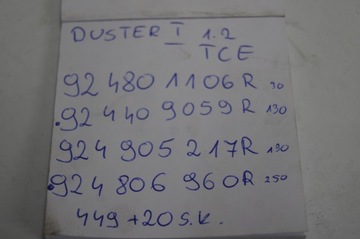 DUSTER I 1.2
TCE
92 480 1106R 70
.92 440 9059R 130
924 905 217R 190
.924 806 960R 250
449 + 20 S.K.